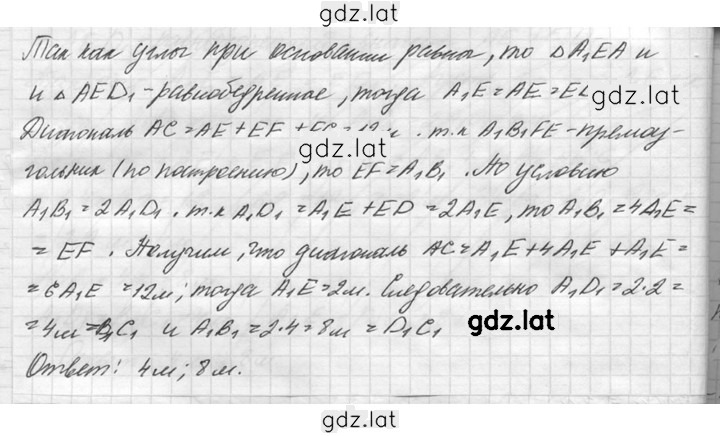 gdz.lat
Так как углы при основании равны, то △A₁EA и
и △AED₁ - равнобедренное, тогда A₁E = AE =
gdz.lat
Диагональ AC = AE + EF + = 12 . т.к A₁B₁FE - прямоу-
gdz.lat
гольник (по построению), то EF = A₁B₁ . По условию
A₁B₁ = 2A₁D₁ . т.к A₁D₁ = A₁E + ED = 2A₁E, то A₁B₁ = 4A₁E =
= EF . Получим, что диагональ AC = A₁E + 4A₁E + A₁E =
= 6A₁E = 12м; тогда A₁E = 2м. Следовательно A₁D₁ = 2·2 =
= 4м = B₁C₁ и A₁B₁ = 2·4 = 8м = D₁C₁
gdz.lat
Ответ: 4м; 8м.
gdz.lat